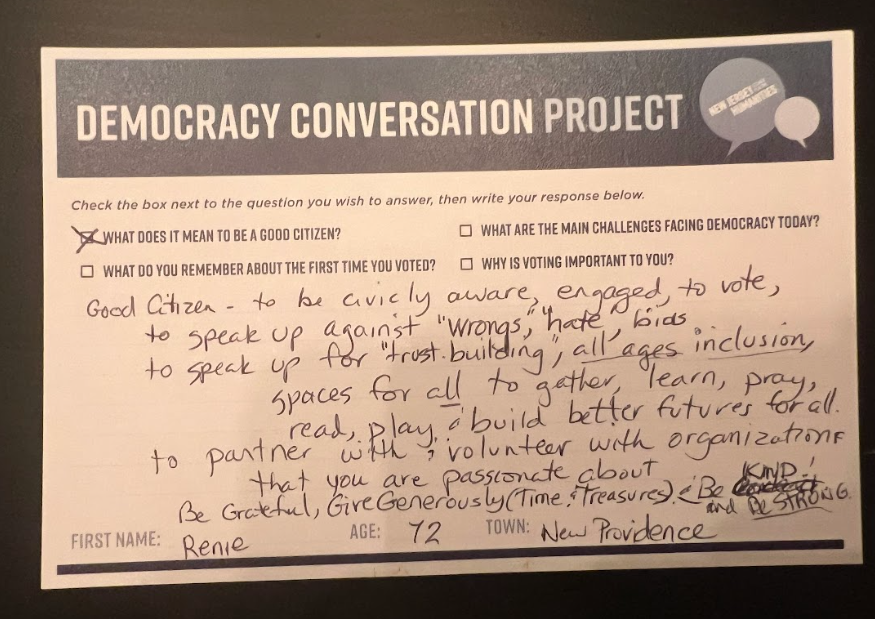 DEMOCRACY CONVERSATION PROJECT
NEW JERSEY
HUMANITIES
Check the box next to the question you wish to answer, then write your response below.
WHAT DOES IT MEAN TO BE A GOOD CITIZEN?
WHAT ARE THE MAIN CHALLENGES FACING DEMOCRACY TODAY?
WHAT DO YOU REMEMBER ABOUT THE FIRST TIME YOU VOTED?
WHY IS VOTING IMPORTANT TO YOU?
Good Citizen - to be civicly aware, engaged, to vote,
to speak up against "Wrongs," "hate", bias
to speak up for "trust-building", all ages inclusion,
spaces for all to gather, learn, pray,
read, play, & build better futures for all.
to partner with & volunteer with organizations
that you are passionate about
Be Grateful, Give Generously (Time & Treasures) & Be KIND!
and BE STRONG.
FIRST NAME: Renie AGE: 72 TOWN: New Providence